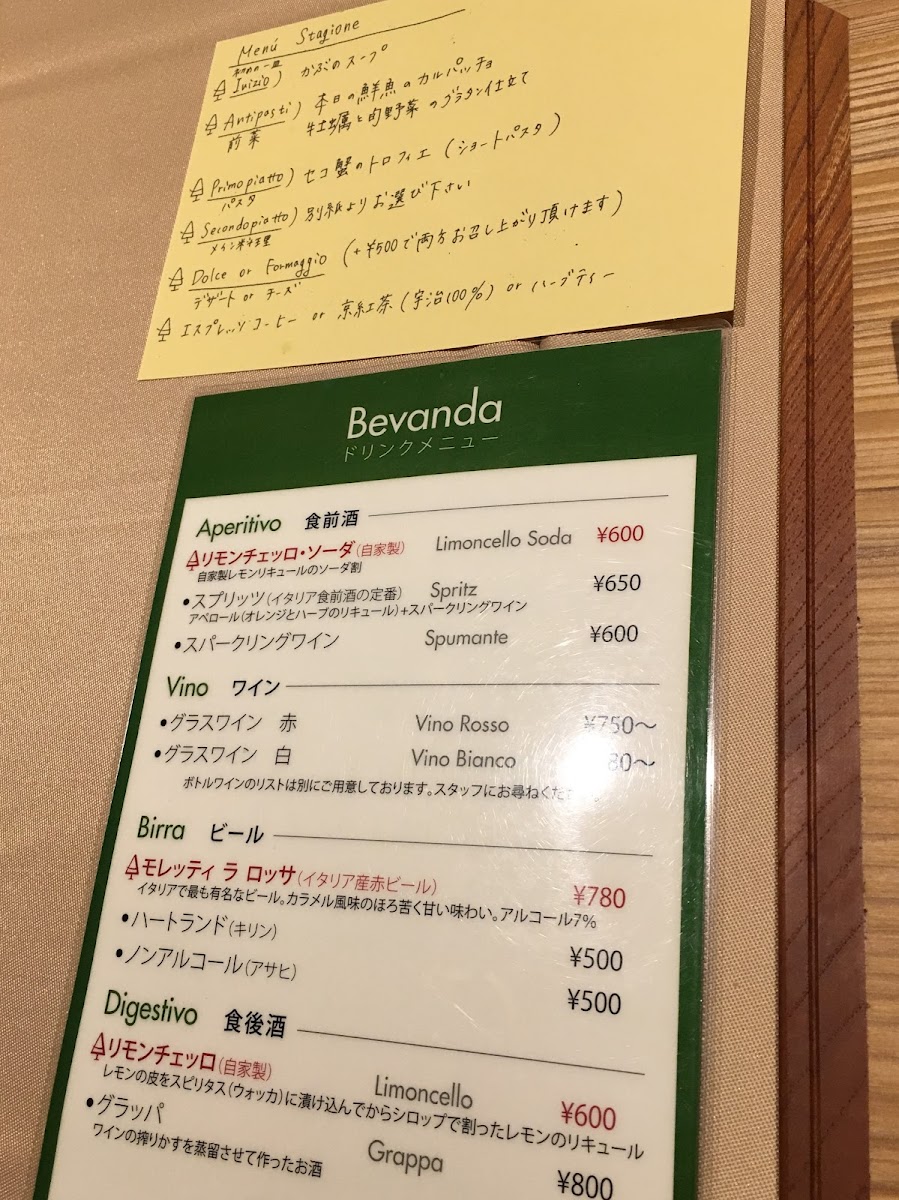 Menú Stagione
Inizio) かぶのスープ
Antipasti) 本日の鮮魚のカルパッチョ
前菜 牡蠣と旬野菜のグラタン仕立て
Primopiatto) セコ蟹のトロフィエ (ショートパスタ)
パスタ
Secondopiatto) 別紙よりお選び下さい
メイン料理
Dolce or Formaggio (+¥500で両方お召し上がり頂けます)
デザート or チーズ
エスプレッソコーヒー or 京紅茶(宇治100%) or ハーブティー
Bevanda
ドリンクメニュー
Aperitivo 食前酒
リモンチェッロ・ソーダ(自家製) Limoncello Soda ¥600
自家製レモンリキュールのソーダ割
•スプリッツ(イタリア食前酒の定番) Spritz ¥650
アペロール(オレンジとハーブのリキュール)+スパークリングワイン
•スパークリングワイン Spumante ¥600
Vino ワイン
•グラスワイン 赤 Vino Rosso ¥750〜
•グラスワイン 白 Vino Bianco 80〜
ボトルワインのリストは別にご用意しております。スタッフにお尋ねくだ
Birra ビール
モレッティ ラ ロッサ(イタリア産赤ビール) ¥780
イタリアで最も有名なビール。カラメル風味のほろ苦く甘い味わい。アルコール7%
•ハートランド(キリン) ¥500
•ノンアルコール(アサヒ) ¥500
Digestivo 食後酒
リモンチェッロ(自家製) Limoncello ¥600
レモンの皮をスピリタス(ウォッカ)に漬け込んでからシロップで割ったレモンのリキュール
•グラッパ Grappa ¥800
ワインの搾りかすを蒸留させて作ったお酒